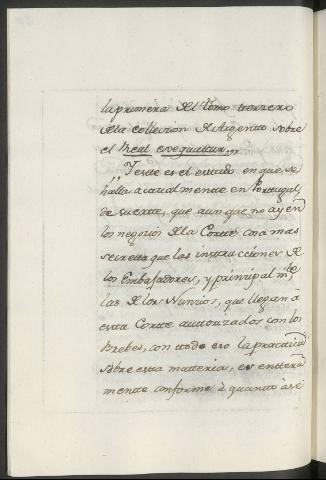 la primera del tomo terzero
dela colleccion de Argento sobre
el Real exequatur,,,
,, Y este es el estado en que se
halla actualmente en Portugal,
de suerte, que aunque no ay en
los negocios dela Corte cosa mas
secreta que las instrucciones de
los Embaxadores, y principalm.te
las de los Nunzios, que llegan à
esta Corte autorizados con los
Brebes, con todo eso la practica
sobre esta matteria, es entera
mente conforme à quanto à se